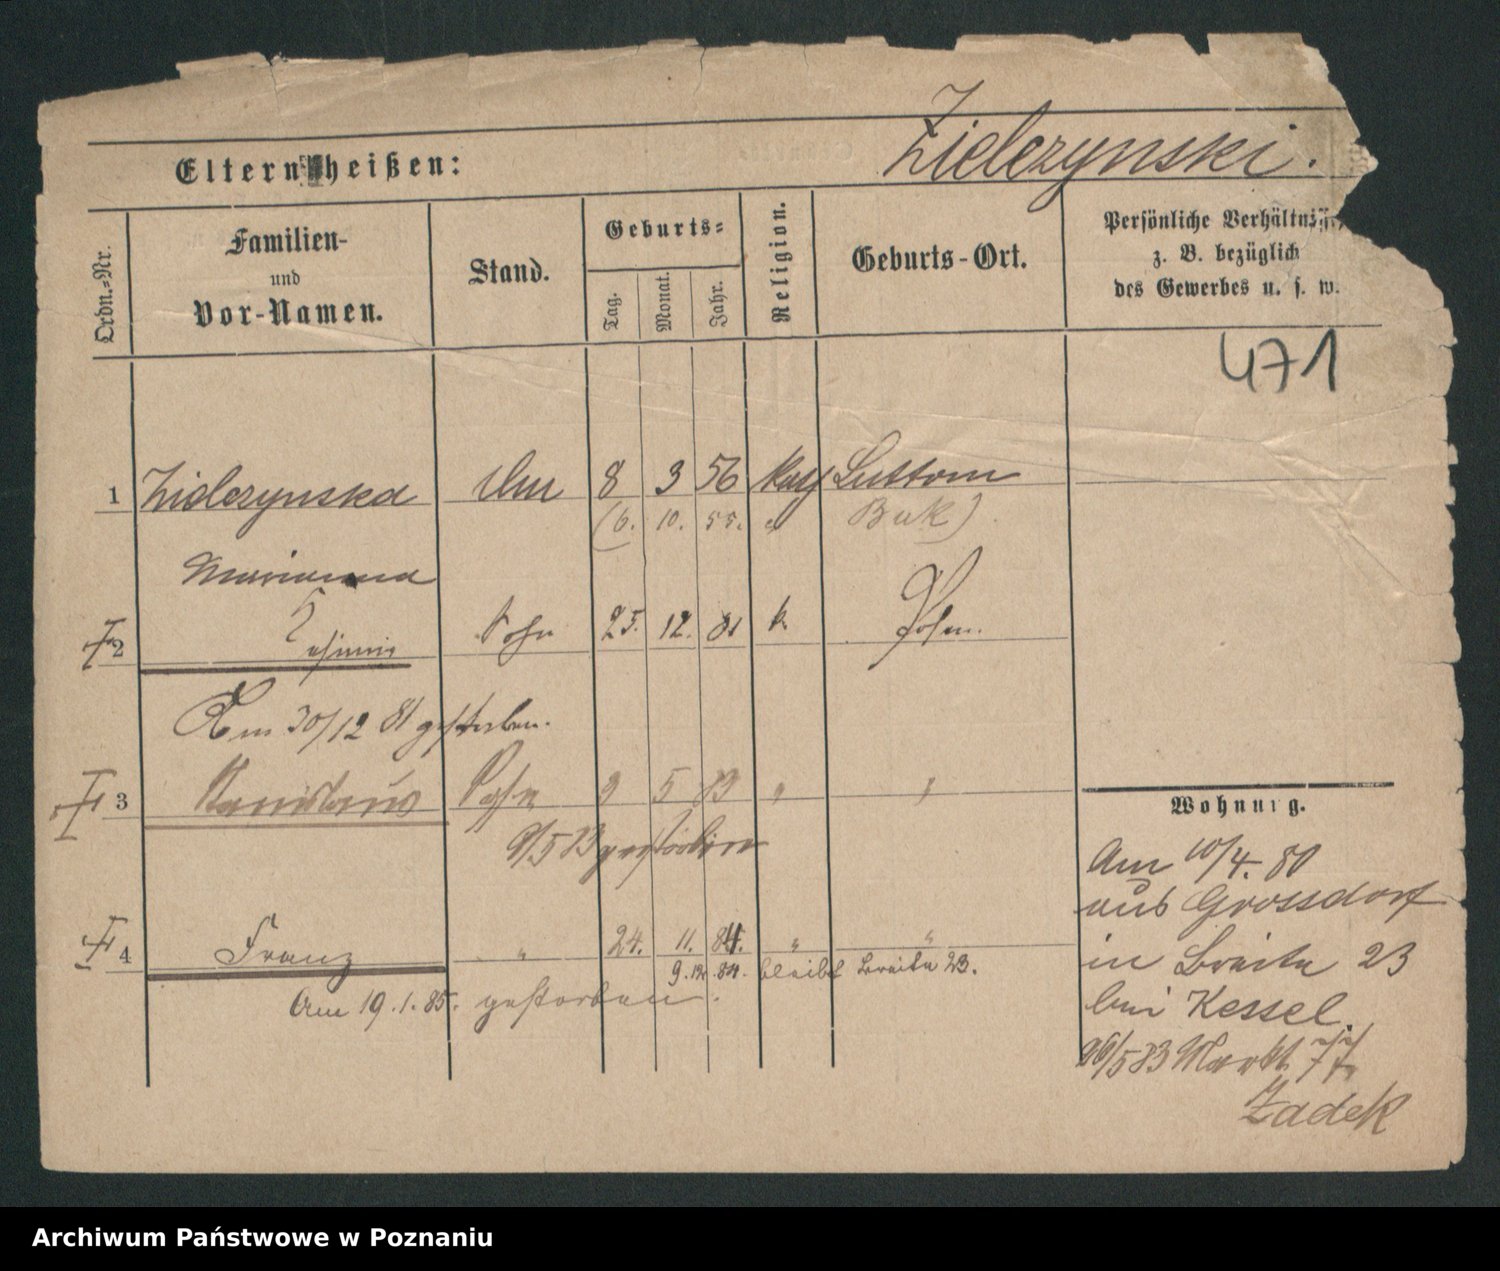 Eltern heißen:
Zielezynski.
Ordn.-Nr.
Familien-
und
Vor-Namen.
Stand.
Geburts-
Tag.
Monat.
Jahr.
Religion.
Geburts-Ort.
Persönliche Verhältniss
z. B. bezüglich
des Gewerbes u. s. w.
471
1 Zielezynska 8 3 56 Kath Luttom
(6. 10. 55. Buk)
Marianna
2 Sohn 25. 12. 81 k. Posen.
Am 30/12 81 gestorben.
3 Stanislaus Sohn 9 5 83 "
9/5 83 gestorben
4 Franz " 24. 11. 84. " "
9.12.84. bleibt Breite 23.
Am 19.1.85. gestorben.
Wohnung.
Am 10/4. 80
aus Grossdorf
in Breite 23
bei Kessel.
26/5 83 Markt 77
Zadek
Archiwum Państwowe w Poznaniu